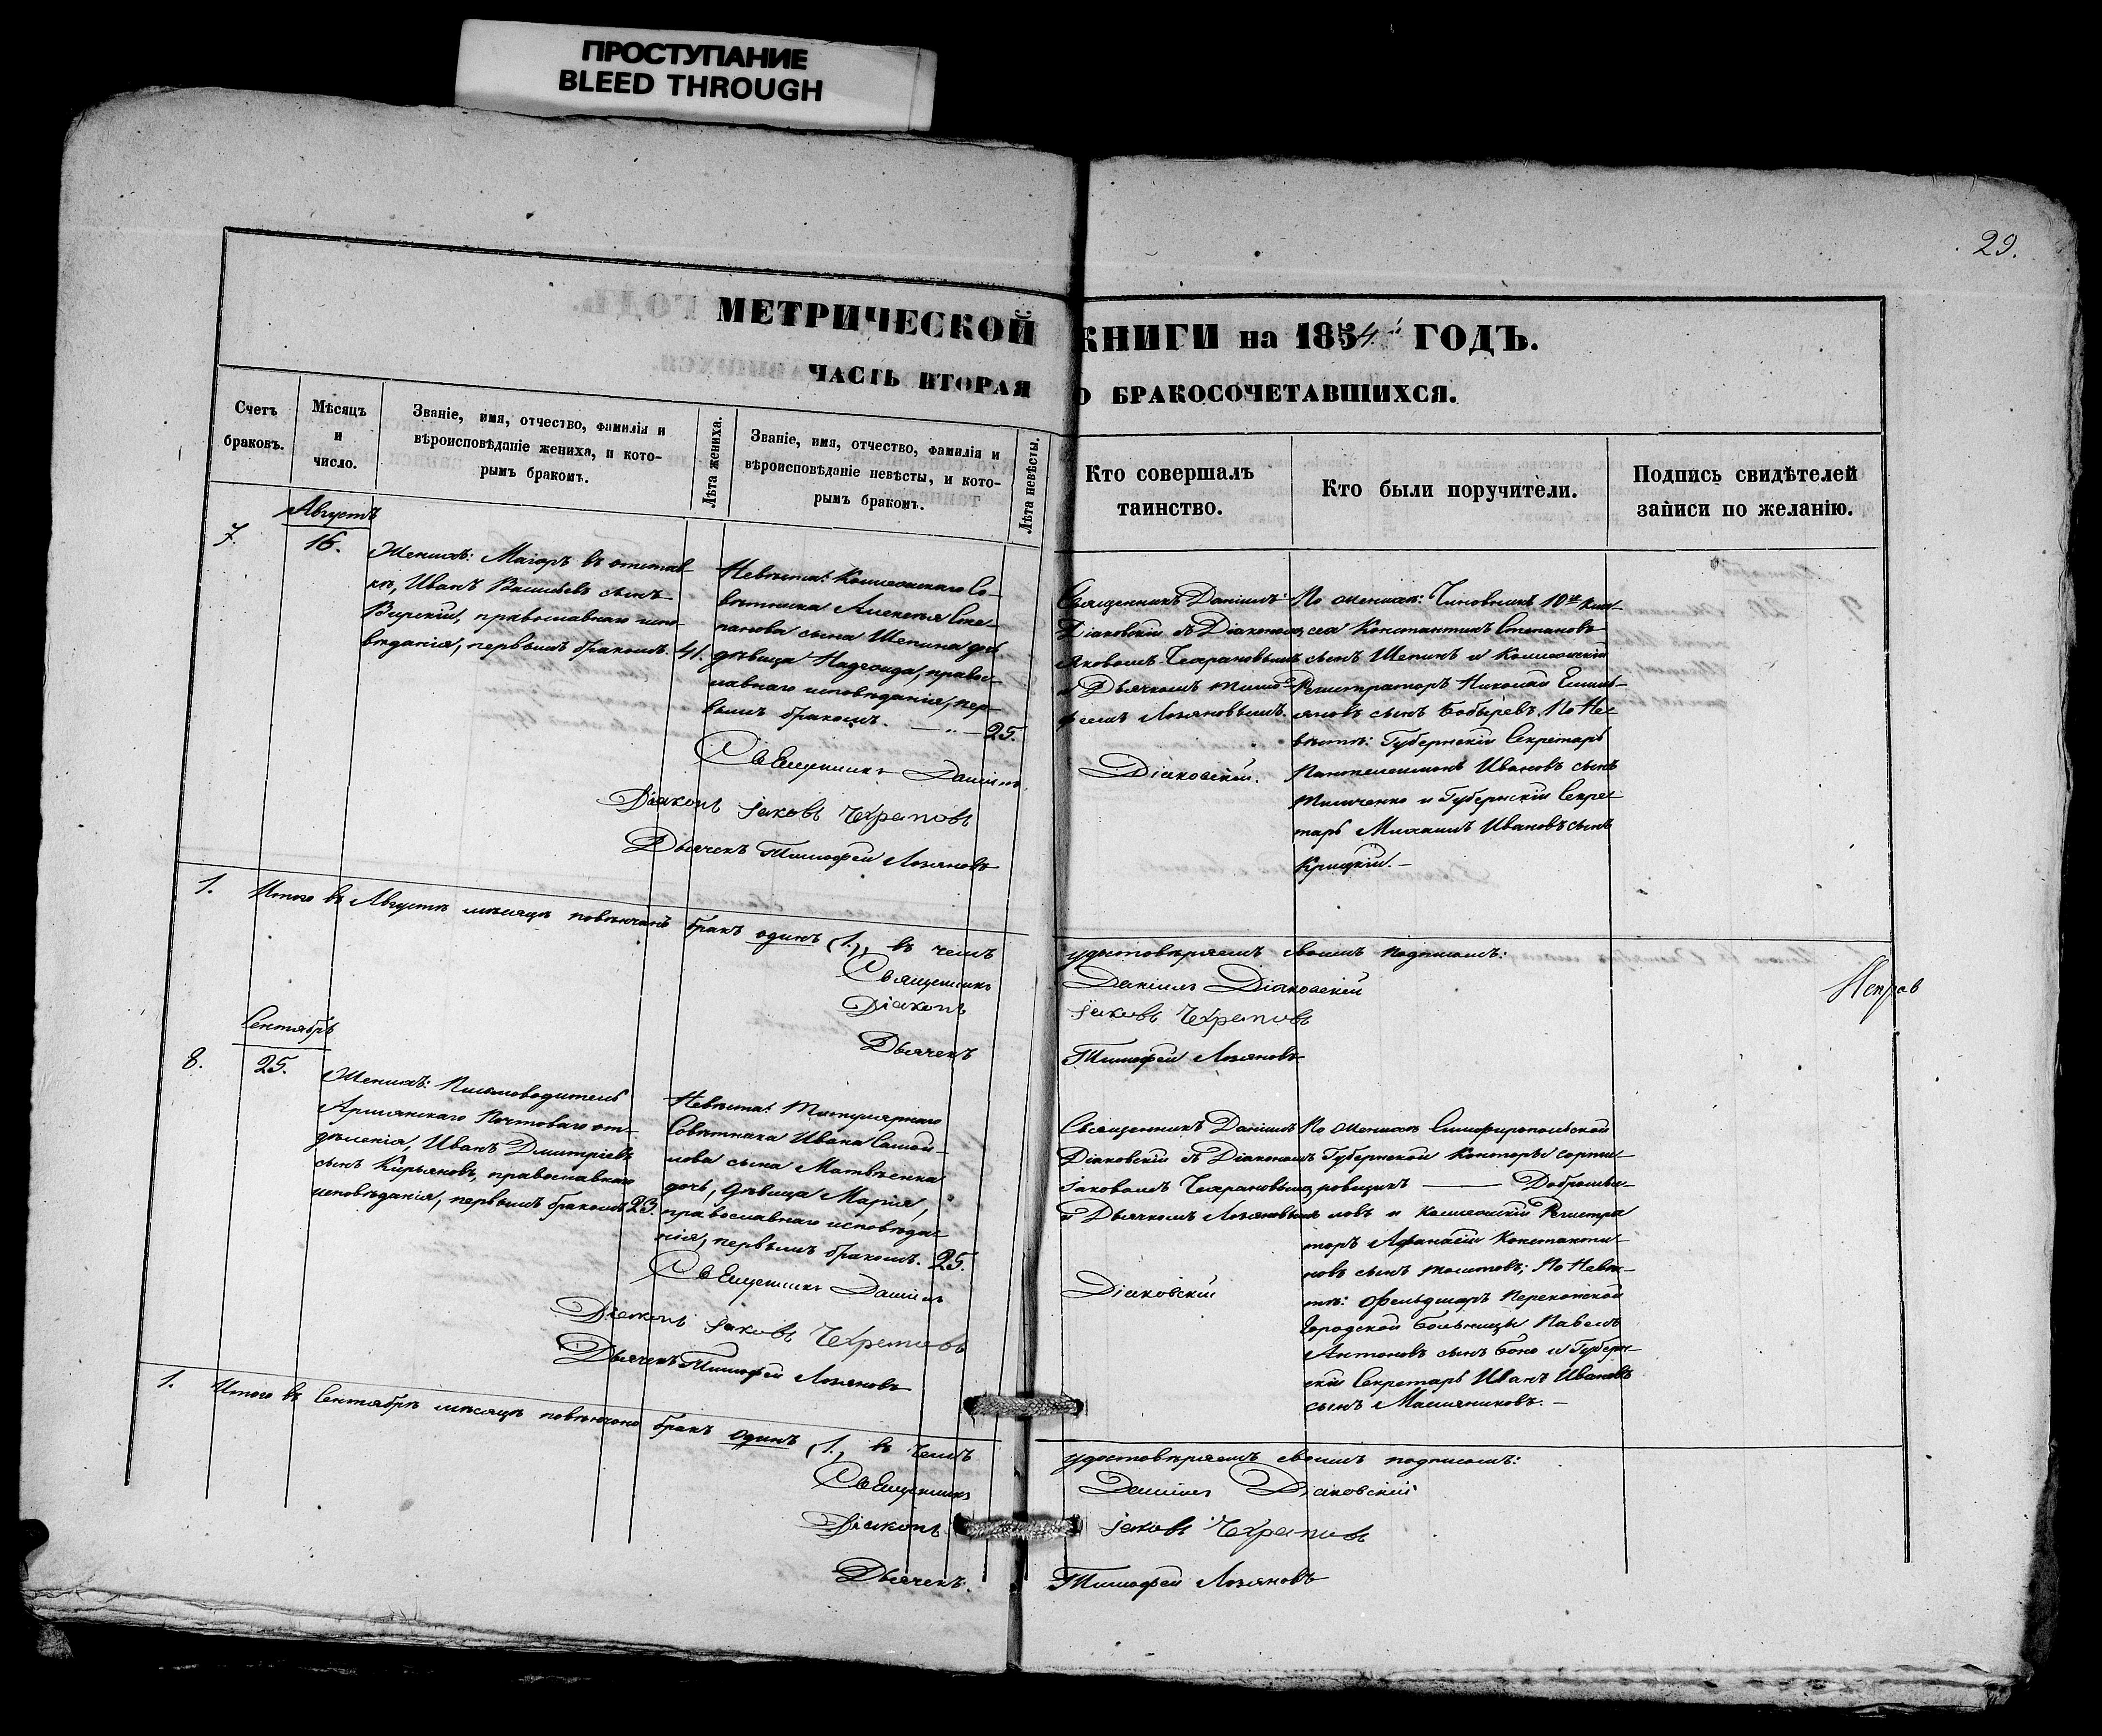 ПРОСТУПАНИЕ
BLEED THROUGH
29.
МЕТРИЧЕСКОЙ КНИГИ на 1854й ГОДЪ.
ЧАСТЬ ВТОРАЯ О БРАКОСОЧЕТАВШИХСЯ.
Счетъ
браковъ.
Мѣсяцъ
и
число.
Званіе, имя, отчество, фамилія и
вѣроисповѣданіе жениха, и кото-
рымъ бракомъ.
Лѣта жениха.
Званіе, имя, отчество, фамилія и
вѣроисповѣданіе невѣсты, и кото-
рымъ бракомъ.
Лѣта невѣсты.
Кто совершалъ
таинство.
Кто были поручители.
Подпись свидѣтелей
записи по желанію.
Августъ
7.
16.
Женихъ: Маіоръ въ отстав-
кѣ, Иванъ Васильевъ сынъ
православнаго испо-
вѣданія, первымъ бракомъ. 41.
Невѣста: Коллежскаго Со-
вѣтника Алексѣя Сте-
панова сына Щепина дочь
дѣвица Надежда, право-
славнаго исповѣданія, пер-
вымъ бракомъ. — „ — 25.
Священникъ Даніилъ
Діаконъ Іаковъ Чехрановъ
Дьячекъ Тимофей Лозановъ
Священникъ Даніилъ
Діаковскій съ Діакономъ
Яковомъ Чехрановымъ
и Дьячкомъ Тимо-
феемъ Лозановымъ.
Діаковскій.
По женихѣ: Чиновникъ 10го клас-
са Константинъ Степановъ
сынъ Щепинъ и Коллежскій
Регистраторъ Николай Емель-
яновъ сынъ Бобыревъ. По Не-
вѣстѣ: Губернскій Секретарь
Пантелеимонъ Ивановъ сынъ
и Губернскій Секре-
тарь Михаилъ Ивановъ сынъ
Крицкій. —
1. Итого въ Августѣ мѣсяцѣ повѣнчанъ бракъ одинъ (1.), въ чемъ удостовѣряемъ своимъ подписомъ:
Священникъ Даніилъ Діаковскій
Діаконъ Іаковъ Чехрановъ
Дьячекъ Тимофей Лозановъ
Сентябрь
8.
25.
Женихъ: Письмоводитель
Армянскаго Почтоваго от-
дѣленія, Иванъ Дмитріевъ
сынъ Кирьяновъ, православнаго
исповѣданія, первымъ бракомъ 23.
Невѣста: Титулярнаго
Совѣтника Ивана Самой-
лова сына Матвѣенка
дочь, дѣвица Марія,
православнаго исповѣда-
нія, первымъ бракомъ. 25.
Священникъ Даніилъ
Діаконъ Іаковъ Чехрановъ
Дьячекъ Тимофей Лозановъ
Священникъ Даніилъ
Діаковскій съ Діакономъ
Іаковомъ Чехрановымъ
и Дьячкомъ Лозановымъ
Діаковскій
По женихѣ Симферопольской
Губернской Конторы сорти-
ровщикъ —— Добромыс-
ловъ и Коллежскій Регистра
торъ Афанасій Константи-
новъ сынъ По Невѣ-
стѣ: Фельдшаръ Перекопской
Городской Больницы Павелъ
Антоновъ сынъ и Губерн-
скій Секретарь Иванъ Ивановъ
сынъ Масляниковъ. —
1. Итого въ Сентябрѣ мѣсяцѣ повѣнчано бракъ одинъ (1.) въ чемъ удостовѣряемъ своимъ подписомъ:
Священникъ Даніилъ Діаковскій
Діаконъ Іаковъ Чехрановъ
Дьячекъ. Тимофей Лозановъ